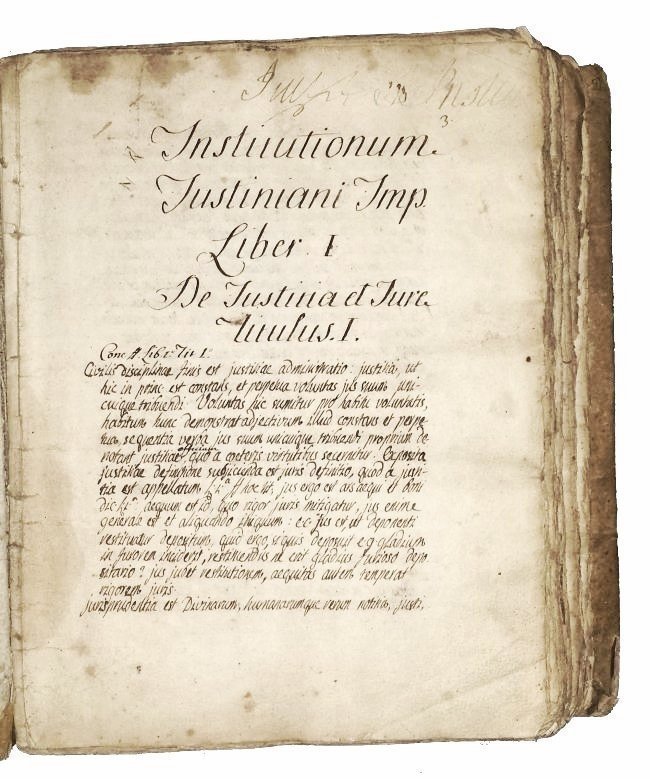 3.
Institutionum
Justiniani Imp.
Liber I
De Justitia et Jure
Titulus. I.
Conc. ff Lib. 1. Tit. 1.
Civilis disciplinae finis est justitiae administratio: justitia, ut
hic in princ est constans, et perpetua voluntas jus suum uni-
cuique tribuendi. Voluntas hic sumitur pro habitu voluntatis,
habitum hunc demonstrat adjectivum illud constans et perpe-
tua, sequentia verba jus suum unicuique tribuendi proprium de
notant justitiae quo a coeteris virtutibus secernitur. Exposita
justitiae definitione subjicienda est juris definitio, quod a justi-
tia est appellatum ff hoc tit. jus ergo est ars aequi et boni
aequum est id, quo rigor juris mitigatur, jus enim
generale est et aliquando iniquum: e.c. jus est ut deponenti
restituatur depositum, quid ergo si quis deposuit e.g. gladium
in furorem incidit, restituendus ne erit gladius furioso depo-
sitario? jus jubet restitutionem, aequitas autem temperat
rigorem juris.
jurisprudentia est Divinarum, humanarumque rerum notitia, justi,